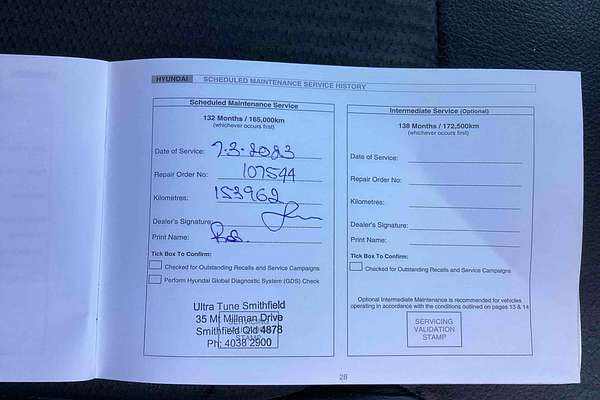 HYUNDAI SCHEDULED MAINTENANCE SERVICE HISTORY
Scheduled Maintenance Service
132 Months / 165,000km
(whichever occurs first)
Date of Service: 7.3.2023
Repair Order No: 107544
Kilometres: 153962
Dealer's Signature:
Print Name:
Tick Box To Confirm:
Checked for Outstanding Recalls and Service Campaigns
Perform Hyundai Global Diagnostic System (GDS) Check
Ultra Tune Smithfield
35 Mt Millman Drive
Smithfield Qld 4878
Ph: 4038 2900
Intermediate Service (Optional)
138 Months / 172,500km
(whichever occurs first)
Date of Service:
Repair Order No:
Kilometres:
Dealer's Signature:
Print Name:
Tick Box To Confirm:
Checked for Outstanding Recalls and Service Campaigns
Optional Intermediate Maintenance is recommended for vehicles
operating in accordance with the conditions outlined on pages 13 & 14
SERVICING
VALIDATION
STAMP
28